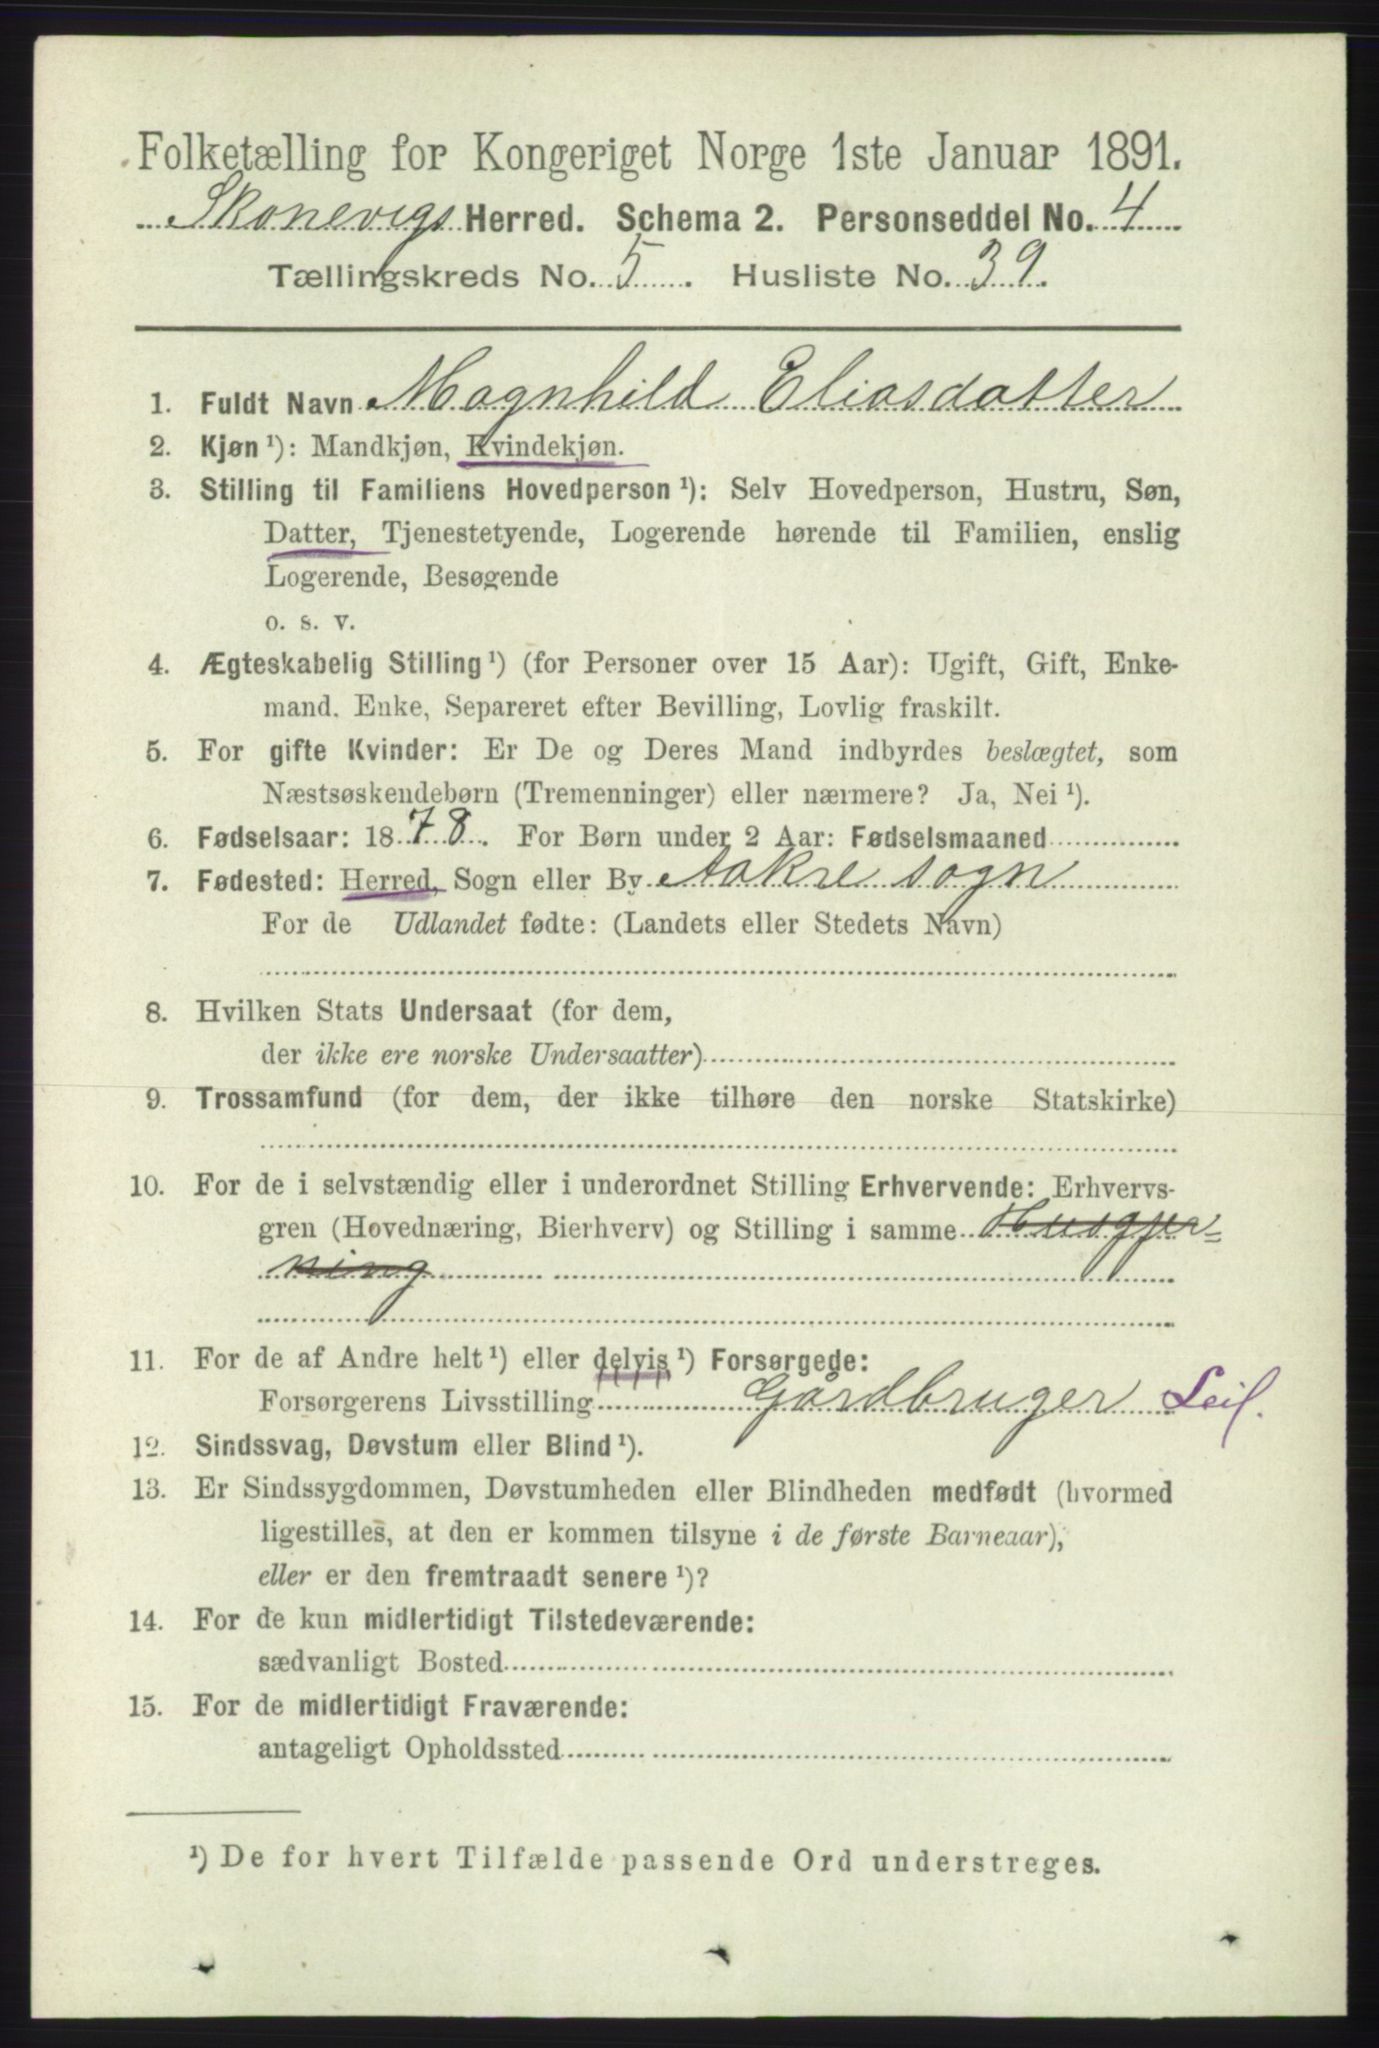 Folketælling for Kongeriget Norge 1ste Januar 1891.
Skonevigs Herred. Schema 2. Personseddel No. 4
Tællingskreds No. 5. Husliste No. 39.
1. Fuldt Navn Magnhild Eliasdatter
2. Kjøn ¹): Mandkjøn, Kvindekjøn.
3. Stilling til Familiens Hovedperson ¹): Selv Hovedperson, Hustru, Søn,
Datter, Tjenestetyende, Logerende hørende til Familien, enslig
Logerende, Besøgende
o. s. v.
4. Ægteskabelig Stilling ¹) (for Personer over 15 Aar): Ugift, Gift, Enke-
mand. Enke, Separeret efter Bevilling, Lovlig fraskilt.
5. For gifte Kvinder: Er De og Deres Mand indbyrdes beslægtet, som
Næstsøskendebørn (Tremenninger) eller nærmere? Ja, Nei ¹).
6. Fødselsaar: 1878. For Børn under 2 Aar: Fødselsmaaned
7. Fødested: Herred, Sogn eller By Aakre sogn
For de Udlandet fødte: (Landets eller Stedets Navn)
8. Hvilken Stats Undersaat (for dem,
der ikke ere norske Undersaatter)
9. Trossamfund (for dem, der ikke tilhøre den norske Statskirke)
10. For de i selvstændig eller i underordnet Stilling Erhvervende: Erhvervs-
gren (Hovednæring, Bierhverv) og Stilling i samme Husgjer=
ning
11. For de af Andre helt ¹) eller delvis ¹) Forsørgede:
Forsørgerens Livsstilling Gårdbruger Leil.
12. Sindssvag, Døvstum eller Blind ¹).
13. Er Sindssygdommen, Døvstumheden eller Blindheden medfødt (hvormed
ligestilles, at den er kommen tilsyne i de første Barneaar),
eller er den fremtraadt senere ¹)?
14. For de kun midlertidigt Tilstedeværende:
sædvanligt Bosted
15. For de midlertidigt Fraværende:
antageligt Opholdssted
¹) De for hvert Tilfælde passende Ord understreges.